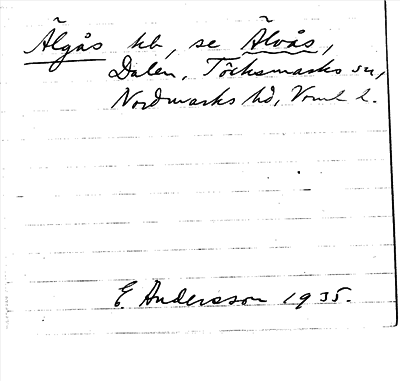 Älgås hb, se Älvås,
Dalen, Töcksmarks sn,
Nordmarks hd, Vrml l.
E. Andersson 1935.